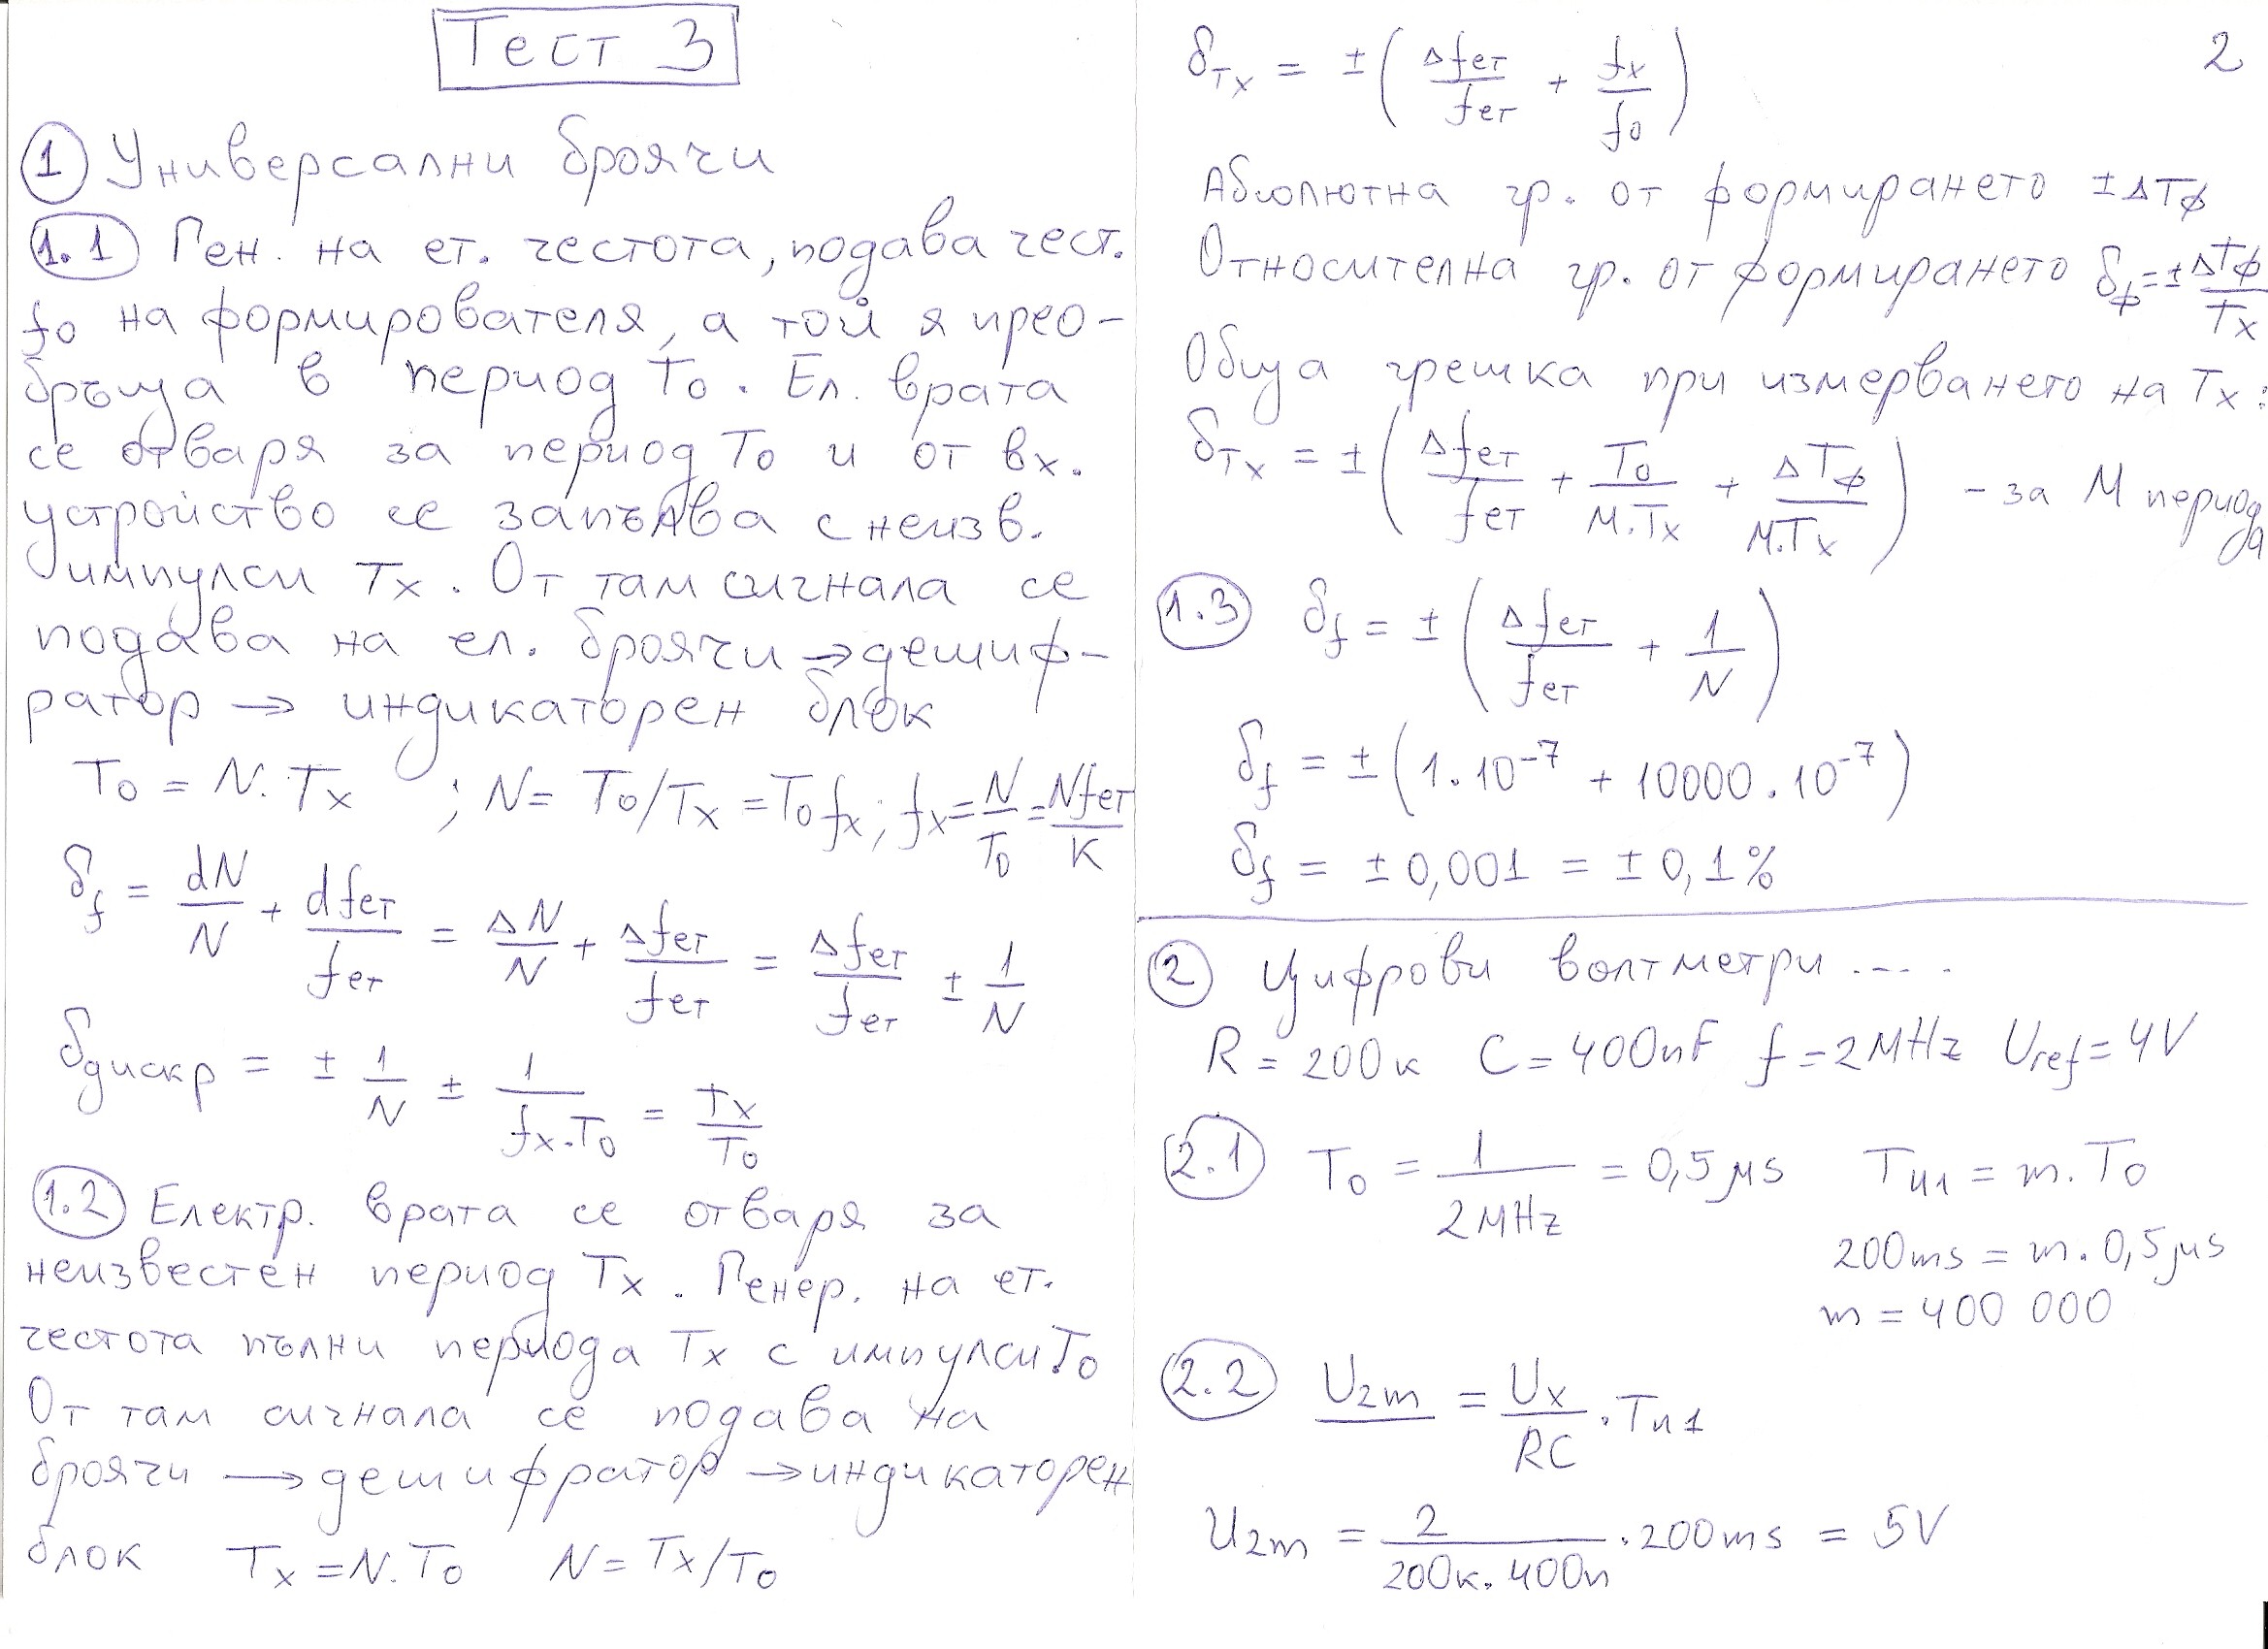 Тест 3
1 Универсални броячи
1.1 Ген. на ет. честота, подава чест.
f0 на формирователя, а той я прео-
бръща в период T0. Ел. врата
се отваря за период T0 и от вх.
устройство се запълва с неизв.
импулси Tx. От там сигнала се
подава на ел. броячи → дешиф-
ратор → индикаторен блок
T0 = N.Tx ; N = T0/Tx = T0 fx ; fx = N/T0 = Nfет/K
δf = dN/N + dfет/fет = ΔN/N + Δfет/fет = Δfет/fет ± 1/N
δдискр = ± 1/N ± 1/(fx.T0) = Tx/T0
1.2 Електр. врата се отваря за
неизвестен период Tx. Генер. на ет.
честота пълни периода Tx с импулси T0
От там сигнала се подава на
броячи → дешифратор → индикаторен
блок Tx = N.T0 N = Tx/T0
2
δTx = ± (Δfет/fет + fx/f0)
Абсолютна гр. от формирането ± ΔTф
Относителна гр. от формирането δф = ± ΔTф/Tx
Обща грешка при измерването на Tx:
δTx = ± (Δfет/fет + T0/(M.Tx) + ΔTф/(M.Tx)) - за M периода
1.3 δf = ± (Δfет/fет + 1/N)
δf = ± (1.10⁻⁷ + 10000.10⁻⁷)
δf = ± 0,001 = ± 0,1%
2 Цифрови волтметри ....
R = 200к C = 400nF f = 2MHz Uref = 4V
2.1 T0 = 1/2MHz = 0,5μs Tи1 = m.T0
200ms = m.0,5μs
m = 400 000
2.2 U2m = Ux/RC . Tи1
U2m = 2/(200к.400n) . 200ms = 5V